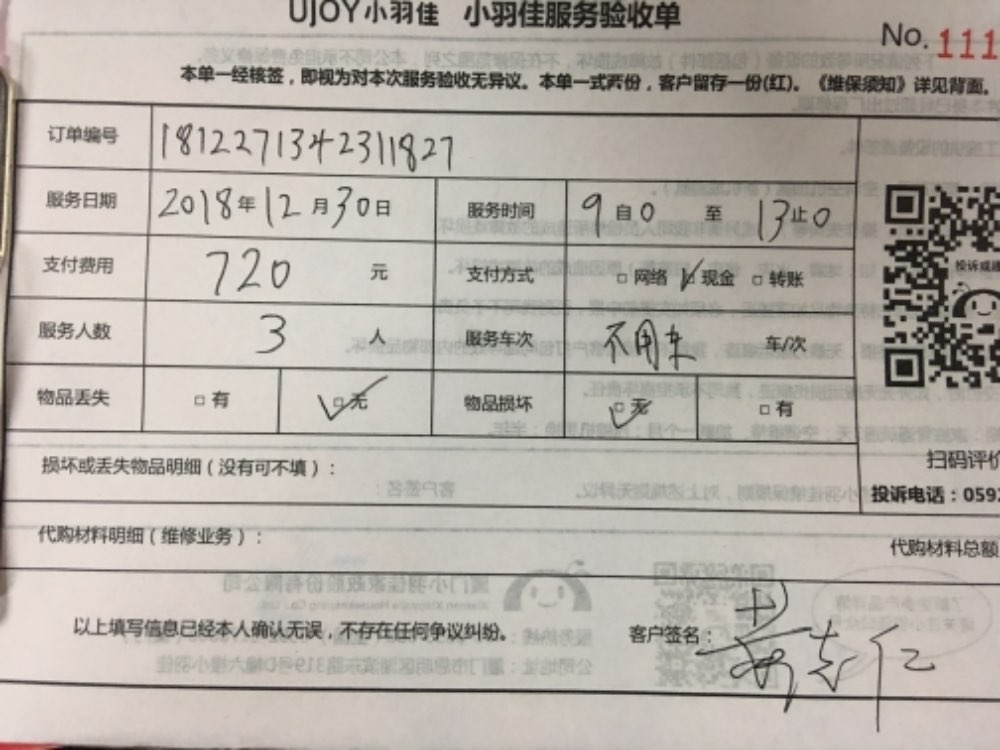 UJOY小羽佳 小羽佳服务验收单
No. 111
本单一经核签，即视为对本次服务验收无异议。本单一式两份，客户留存一份(红)。《维保须知》详见背面。
订单编号 1812271342311827
服务日期 2018年12月30日 服务时间 9自0 至 13止0
支付费用 720 元 支付方式 □网络 ☑现金 □转账
服务人数 3 人 服务车次 不用车 车/次
物品丢失 □有 ☑无 物品损坏 ☑无 □有
投诉或建
损坏或丢失物品明细（没有可不填）：
扫码评价
投诉电话：0592
代购材料明细（维修业务）：
代购材料总额
以上填写信息已经本人确认无误，不存在任何争议纠纷。 客户签名：